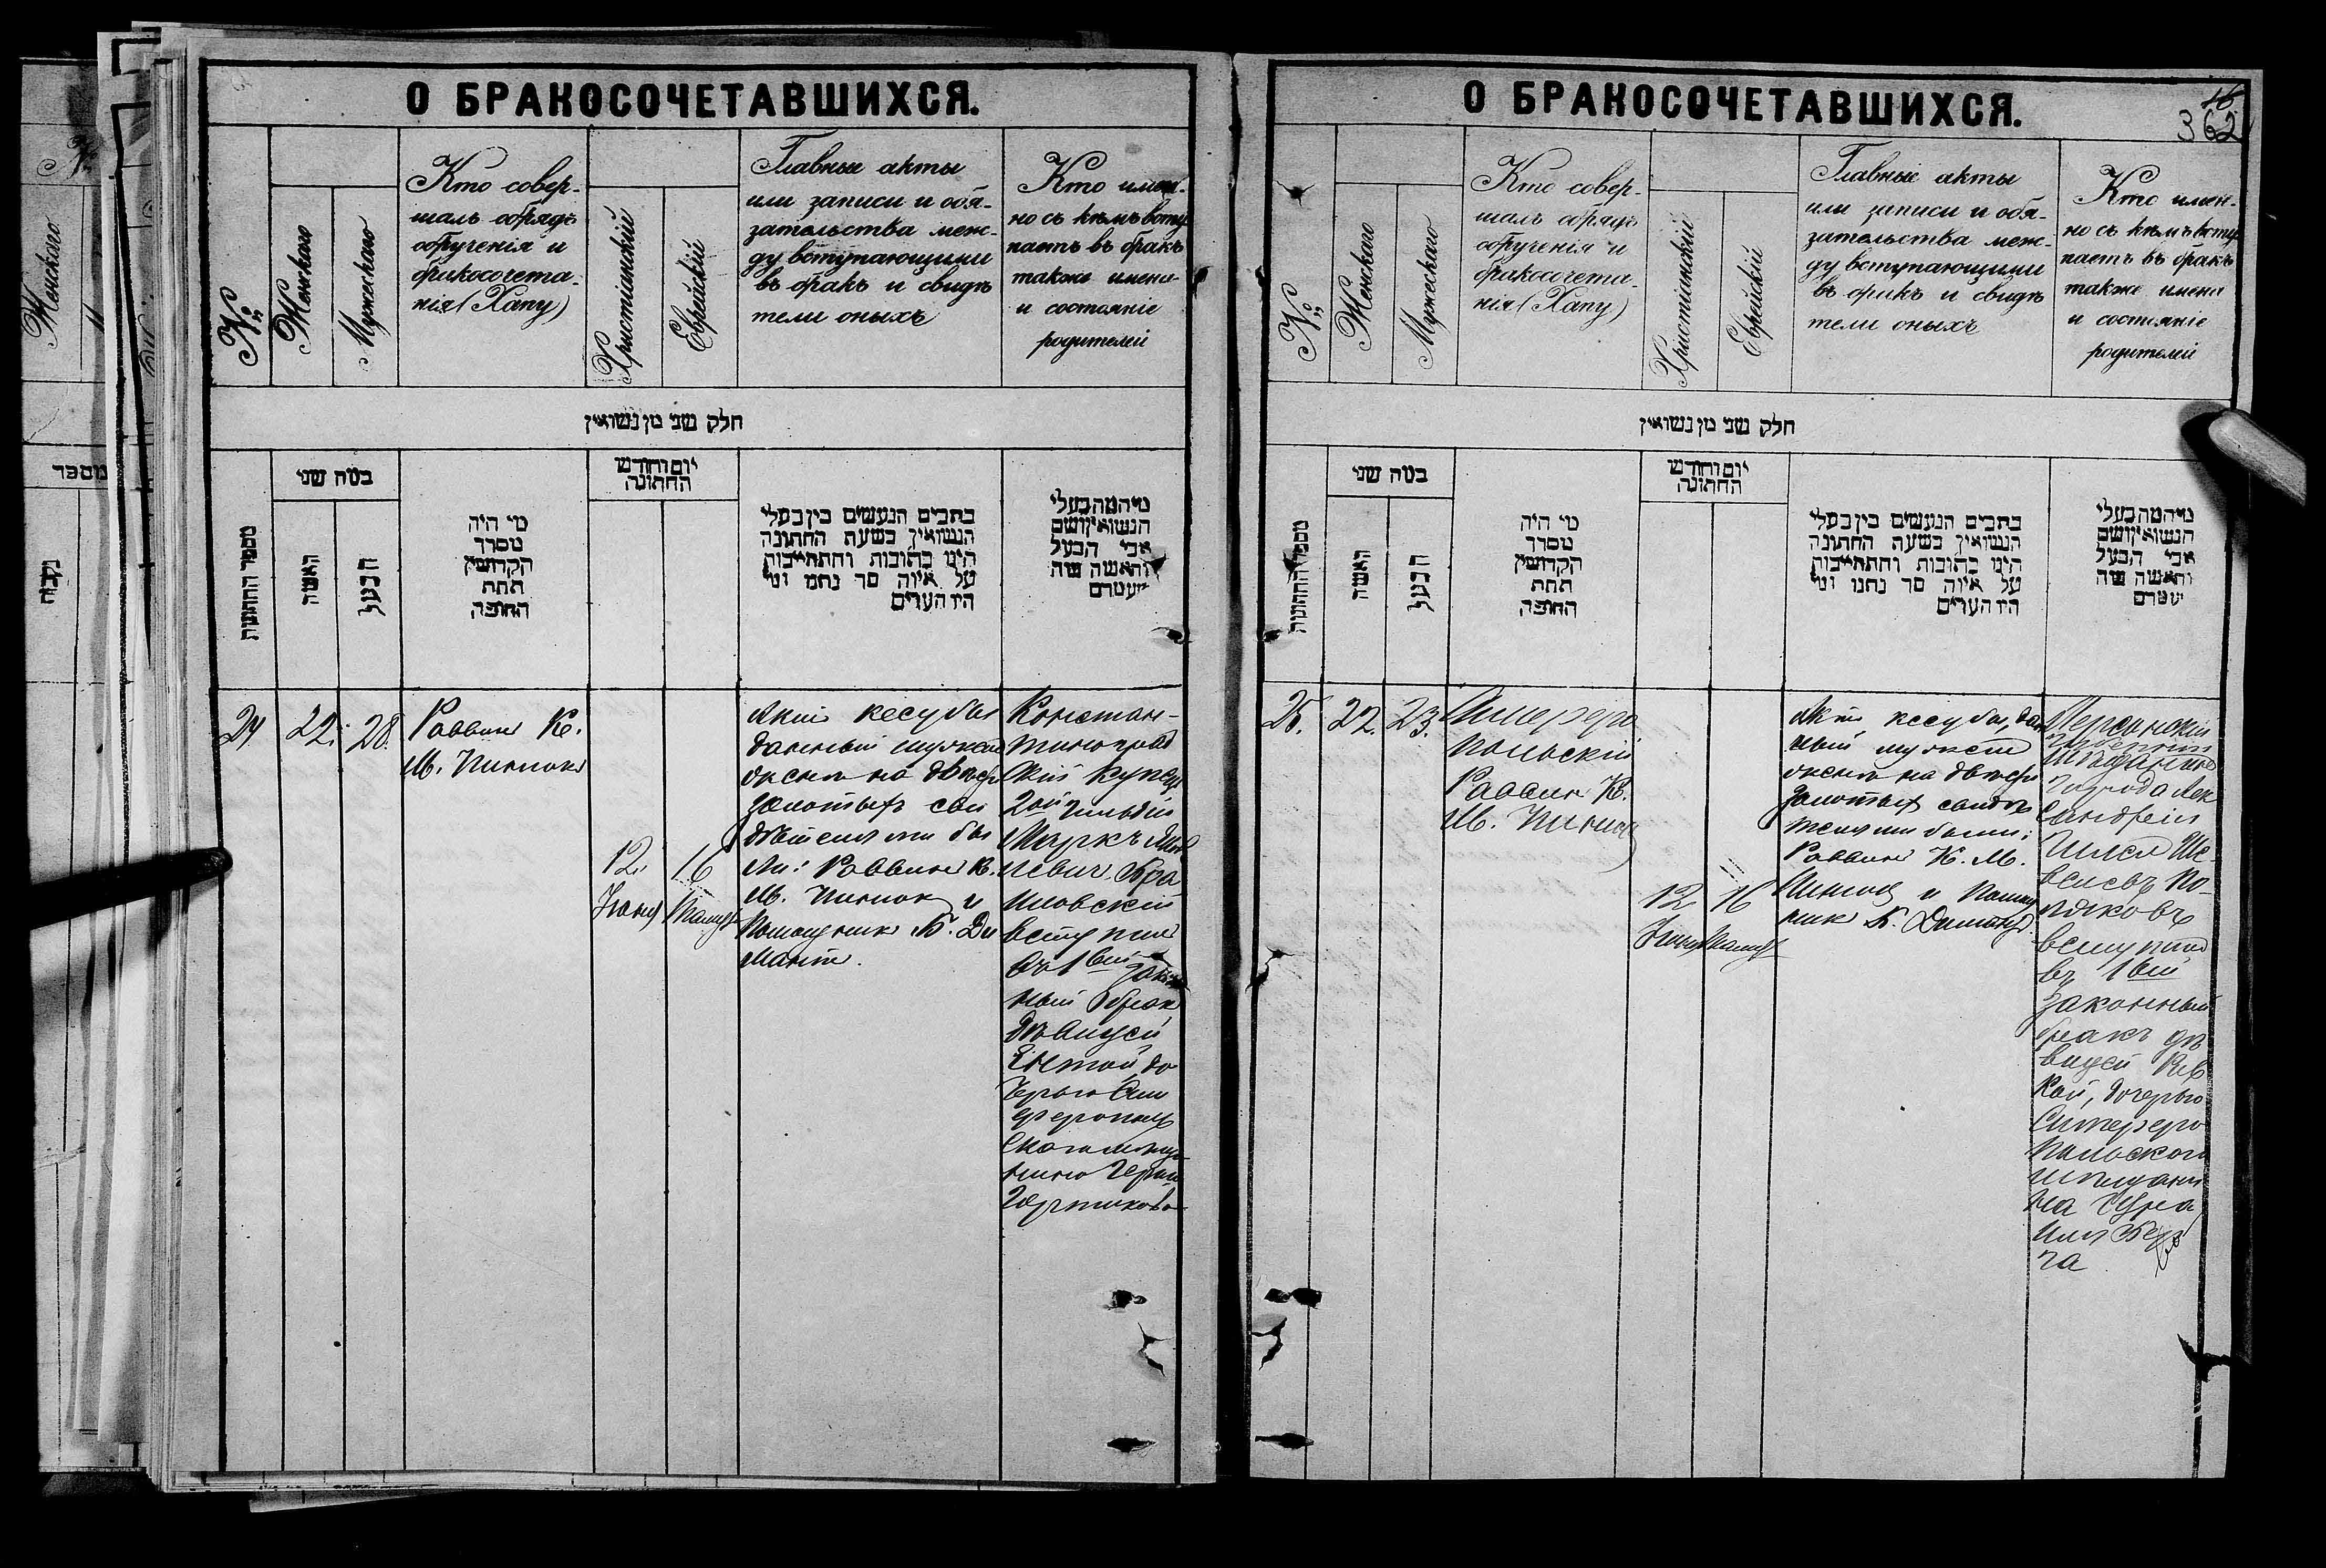 О БРАКОСОЧЕТАВШИХСЯ.
№
Женскаго
Мужескаго
Кто совер-
шалъ обрядъ
обрученія и
бракосочета-
нія (Хапу)
Христіянскій
Еврейскій
Главныя акты
или записи и обя-
зательства меж-
ду вступающими
въ бракъ и свидѣ
тели оныхъ
Кто имен-
но съ кѣмъ всту
паетъ въ бракъ
также имена
и состояніе
родителей
חלק שני מן נשואין
מספר החתונות
כמה שני
האשה
הבעל
מי היה
מסדר
הקדושין
תחת
החופה
יום וחודש
החתונה
כתבים הנעשים בין בעלי
הנשואין בשעת החתונה
היינו כתובות והתחייבות
על איזה סך נתנו ומי
היו העדים
מי המה בעלי
הנשואין ושם
אבי הבעל
והאשה ומה
מעמדם
24
22.
28.
Раввинъ К.
М. Пинмокъ
12.
Іюня
16
Тамуза
Актъ кесубы
данный мужемъ
женѣ на двѣсти
золотыхъ сви
дѣтелями бы
ли: Раввинъ К.
М. Пинмок и
Помощникъ Б. Ди
мантъ.
Констан-
тиноград
скій Купецъ
2ой гильдіи
Маркъ
Бра
иловскій
вступилъ
въ 1вый закон
ный бракъ
дѣвицей
до
черью Сим
ферополь
скаго мѣща-
нина
О БРАКОСОЧЕТАВШИХСЯ.
16
362
№
Женскаго
Мужескаго
Кто совер-
шалъ обрядъ
обрученія и
бракосочета-
нія (Хапу)
Христіянскій
Еврейскій
Главныя акты
или записи и обя-
зательства меж-
ду вступающими
въ бракъ и свидѣ
тели оныхъ
Кто имен-
но съ кѣмъ всту
паетъ въ бракъ
также имена
и состояніе
родителей
חלק שני מן נשואין
מספר החתונות
כמה שני
האשה
הבעל
מי היה
מסדר
הקדושין
תחת
החופה
יום וחודש
החתונה
כתבים הנעשים בין בעלי
הנשואין בשעת החתונה
היינו כתובות והתחייבות
על איזה סך נתנו ומי
היו העדים
מי המה בעלי
הנשואין ושם
אבי הבעל
והאשה ומה
מעמדם
25.
22.
23.
Симферо
польскій
Раввин К.
М.
12
Іюня
16
Тамуза
Актъ кесубы, дан
ный мужем
женѣ на двѣсти
золотых свидѣ
телями были:
Раввинъ К. М.
и Помощ
ник Б. Димантъ.
мѣщанинъ
города Алек
сандріи
Поляковъ
вступилъ
въ 1вый
законный
бракъ дѣ
вицей Рив
кой, дочерью
Симферо
польскаго
мѣщани
на Изра
иля